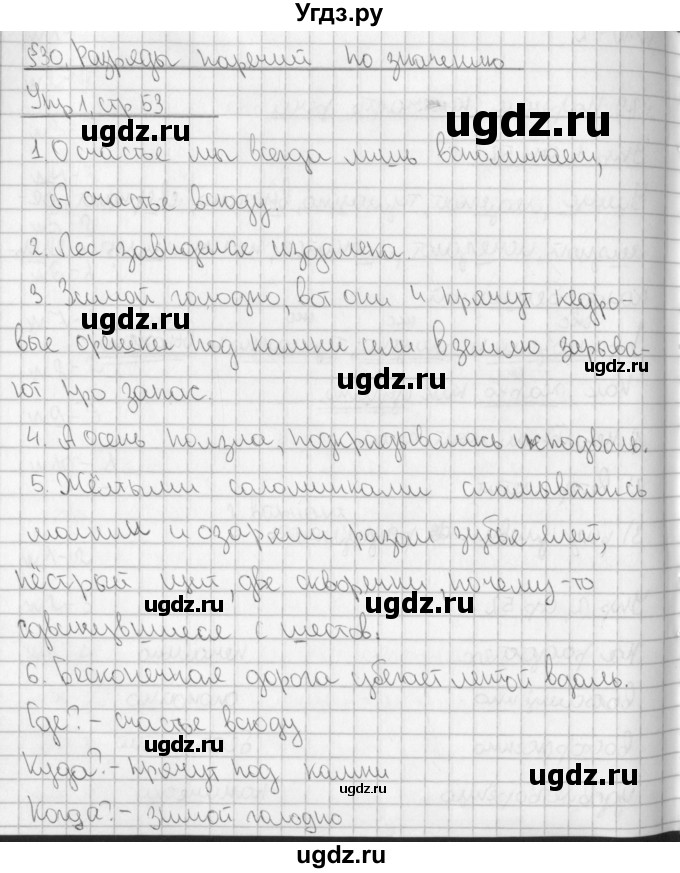 Угдз.ру
§30. Разряды наречий по значению
Упр 1. стр 53
ugdz.ru
ugdz.ru
1. О счастье мы всегда лишь вспоминаем,
А счастье всюду
ugdz.ru
2. Лес завиделся издалека.
3. Зимой голодно, вот они и прячут кедро-
ugdz.ru
вые орешки под камни или в землю зарыва-
ugdz.ru
ugdz.ru
ют про запас.
4. А осень ползла, подкрадывалась исподволь.
ugdz.ru
5. Жёлтыми соломинками сламывались
молнии и озаряли разом зубья елей,
пёстрый щит, две скворечни, почему-то
ugdz.ru
ugdz.ru
сдвинувшиеся с шестов.
6. Бесконечная дорога убегает лентой вдаль.
Где? - счастье всюду
ugdz.ru
Куда? - прячут под камни
ugdz.ru
Когда? - зимой голодно
ugdz.ru